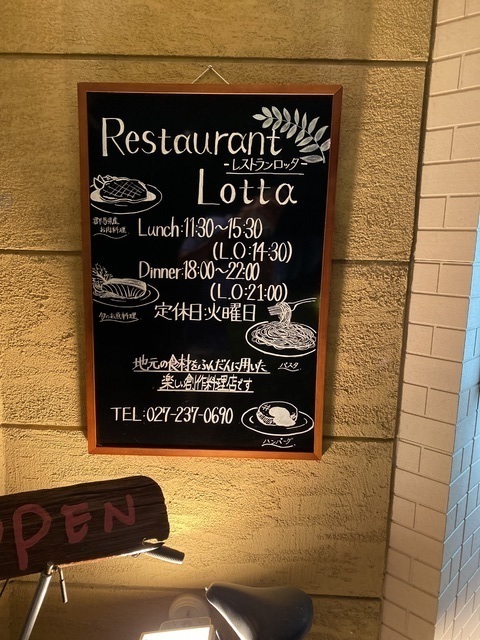 Restaurant
-レストランロッタ-
Lotta
群馬県産
お肉料理
Lunch:11:30～15:30
(L.O:14:30)
Dinner:18:00～22:00
(L.O:21:00)
お魚料理
定休日:火曜日
パスタ
地元の食材をふんだんに用いた
楽しい創作料理店です
TEL:027-237-0690
ハンバーグ
OPEN